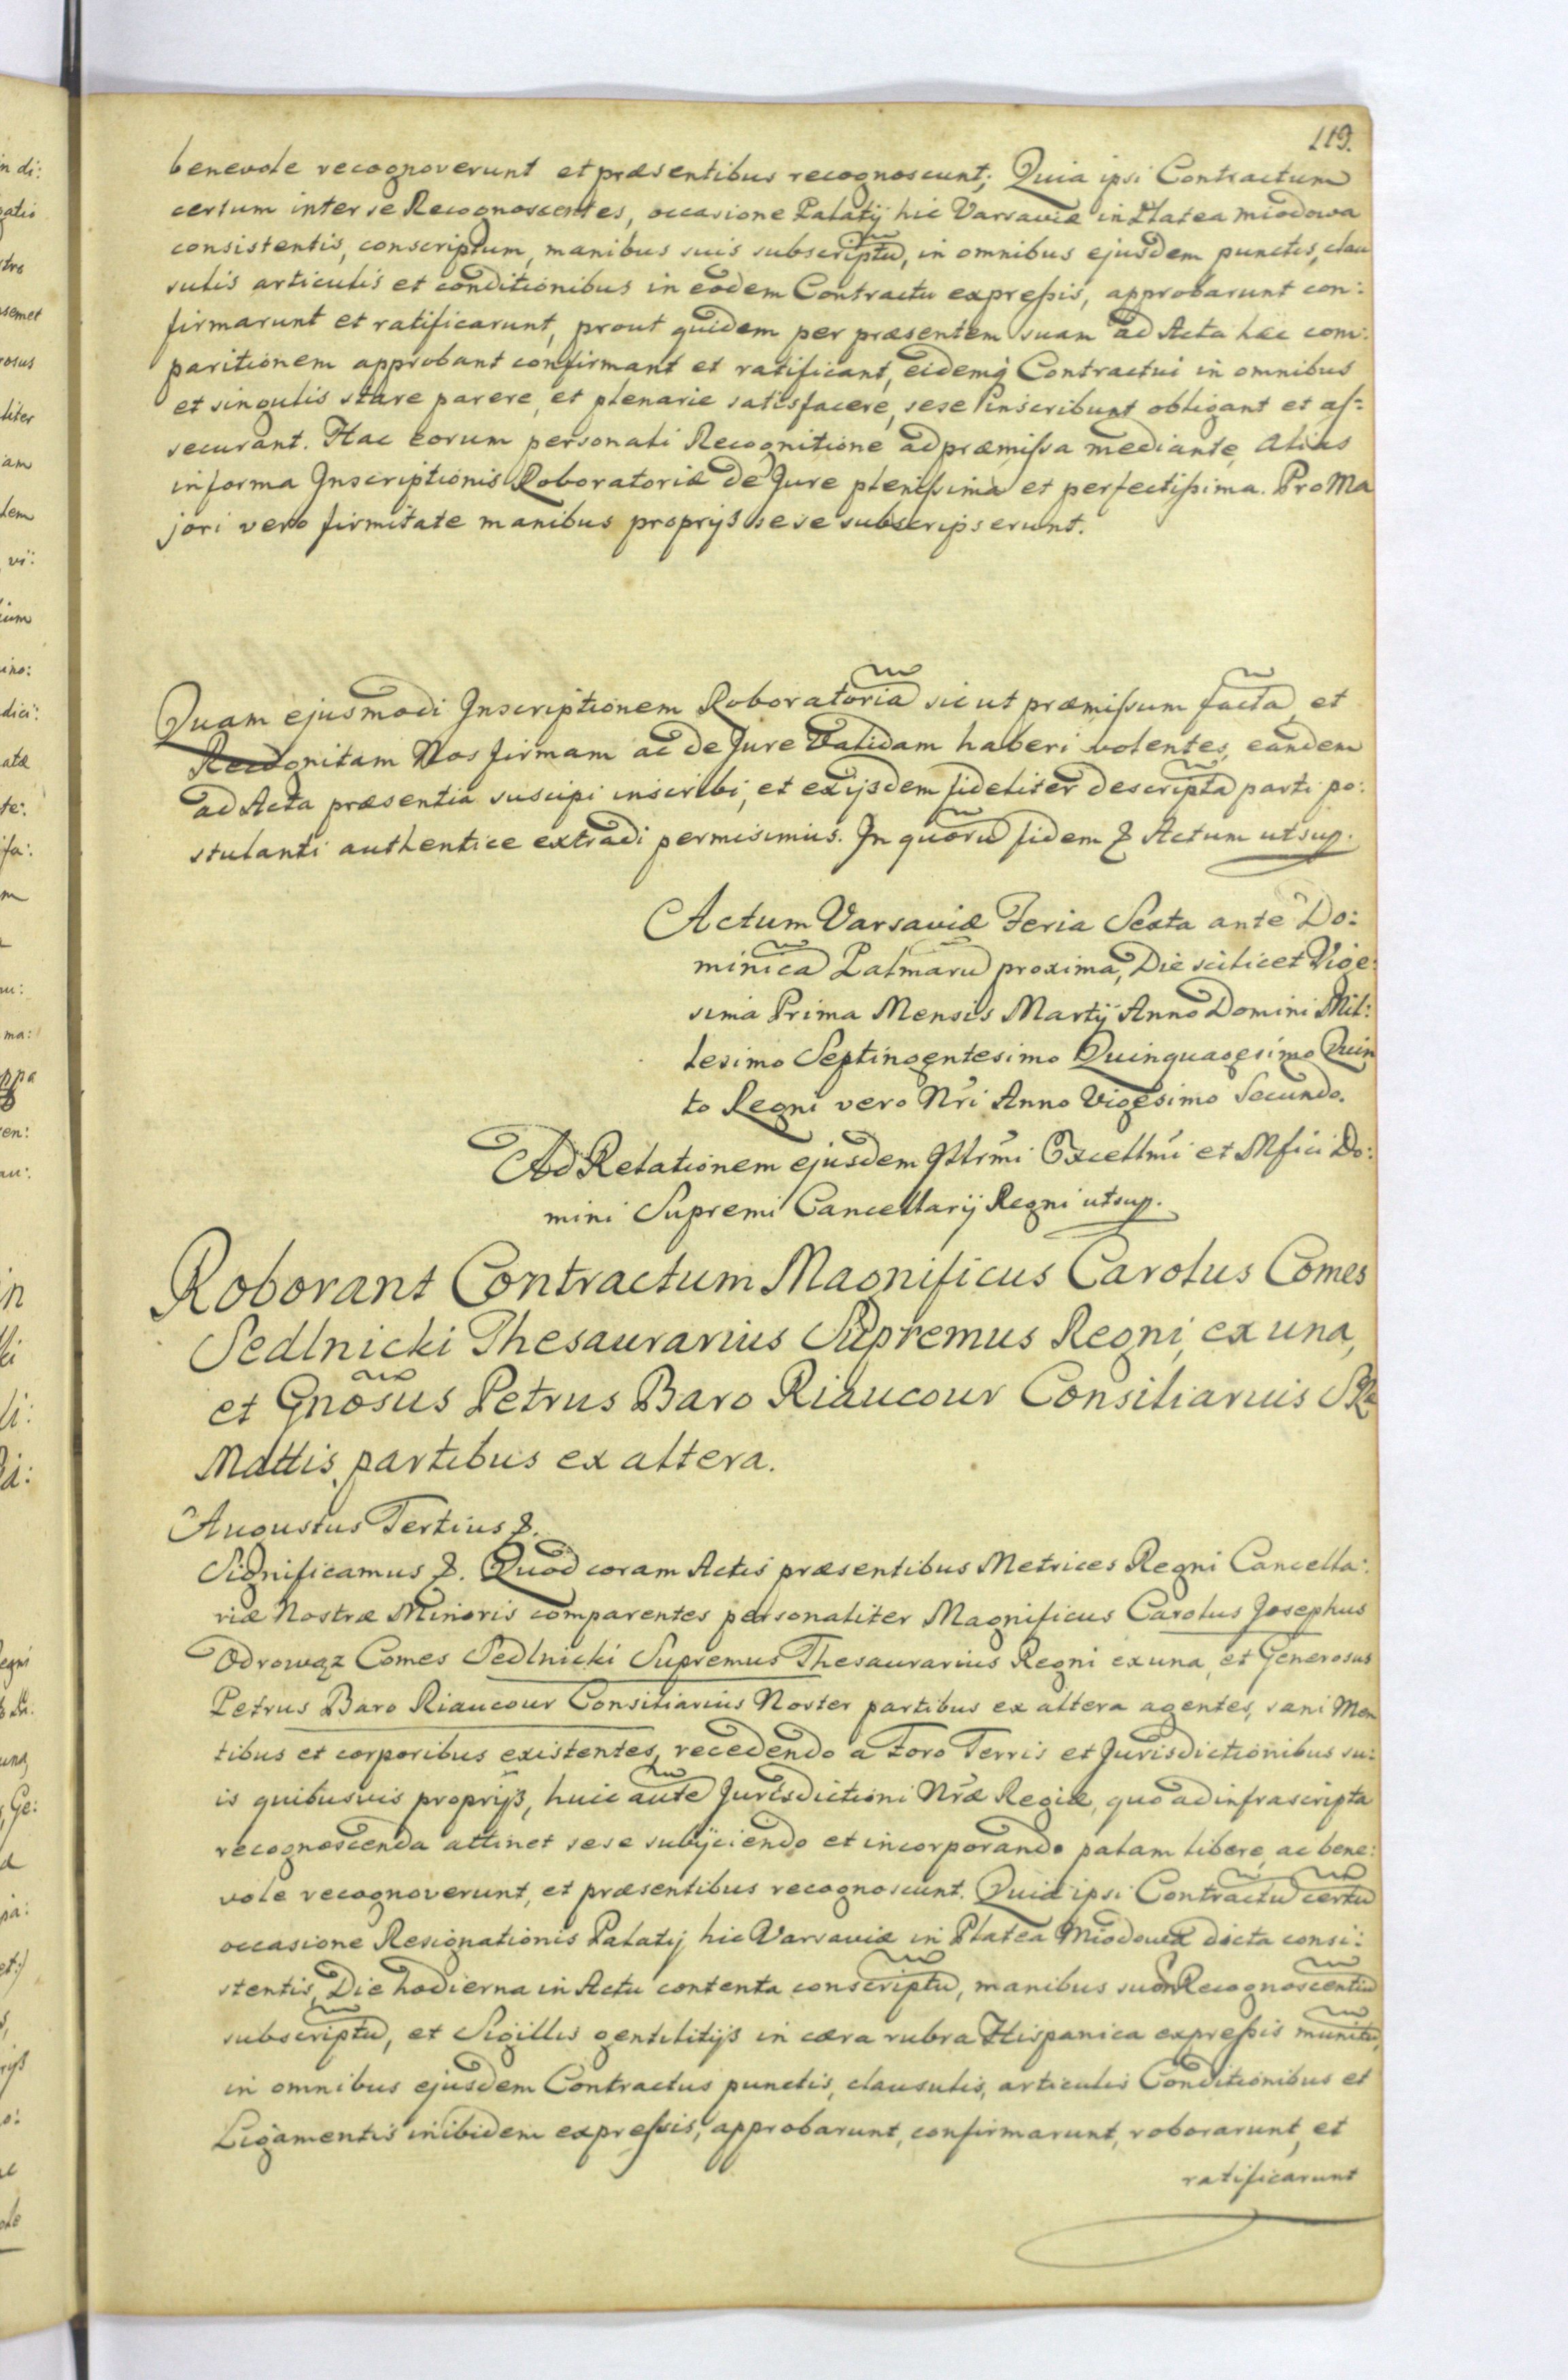 119.
benevole recognoverunt et præsentibus recognoscunt; Quia ipsi Contractum
certum inter se Recognoscentes, occasione Palatij hic Varsaviæ in Platea Miodowa
consistentis, conscriptum, manibus suis subscriptū, in omnibus ejusdem punctis, clau
sulis articulis et conditionibus in eodem Contractu expreſsis, approbarunt con:
firmarunt et ratificarunt, prout quidem per præsentem suam ad Acta hæc com:
paritionem approbant confirmant et ratificant, eidemq Contractui in omnibus
et singulis stare parere, et plenarie satisfacere, sese inscribunt obligant et aſ=
securant. Hac eorum personali Recognitione ad præmiſsa mediante, Alias
in forma Inscriptionis Roboratoriæ de Jure pleniſsima et perfectiſsima. Pro Ma
jori vero firmitate manibus proprijs sese subscripserunt.
Quam ejusmodi Inscriptionem Roboratoriā sicut præmiſsum factā, et
Recognitam Nos firmam ac de Jure Validam haberi volentes, eandem
ad Acta præsentia suscipi inscribi, et ex ijsdem fideliter descriptā parti po:
stulanti authentice extradi permisimus. In quorū fidem &. Actum ut sup.
Actum Varsaviæ Feria Sexta ante Do:
minicā Palmarū proxima, Die scilicet Vige:
sima Prima Mensis Martij Anno Domini Mil:
lesimo Septingentesimo Quinquagesimo Quin
to Regni vero Nr̃i Anno Vigesimo Secundo.
Ad Relationem ejusdem Illr̃mi Excellm̃i et Mfici Do:
mini Supremi Cancellarij Regni ut sup.
Roborant Contractum Magnificus Carolus Comes
Sedlnicki Thesaurarius Supremus Regni, ex una,
et Gnõsus Petrus Baro Riaucour Consiliarius SRæ
Mattis, partibus ex altera.
Augustus Tertius &.
Significamus &. Quod coram Actis præsentibus Metrices Regni Cancella:
riæ Nostræ Minoris comparentes personaliter Magnificus Carolus Josephus
Odrowąz Comes Sedlnicki Supremus Thesaurarius Regni ex una, et Generosus
Petrus Baro Riaucour Consiliarius Noster partibus ex altera agentes, sani Men
tibus et corporibus existentes, recedendo a Foro Terris et Jurisdictionibus su:
is quibusvis proprijs, huic aute Jurisdictioni Nr̃æ Regiæ, quo ad infrascripta
recognoscenda attinet sese subijciendo et incorporando palam libere, ac bene:
vole recognoverunt, et præsentibus recognoscunt. Quia ipsi Contractū certū
occasione Resignationis Palatij hic Varsaviæ in Platea Miodowa dicta consi:
stentis, Die hodierna in Actu contenta conscriptū, manibus suor Recognoscentiū
subscriptū, et Sigillis gentilitijs in cæra rubra Hispanica expreſsis munitū,
in omnibus ejusdem Contractus punctis, clausulis, articulis Conditionibus et
Ligamentis inibidem expreſsis, approbarunt, confirmarunt, roborarunt, et
ratificarunt